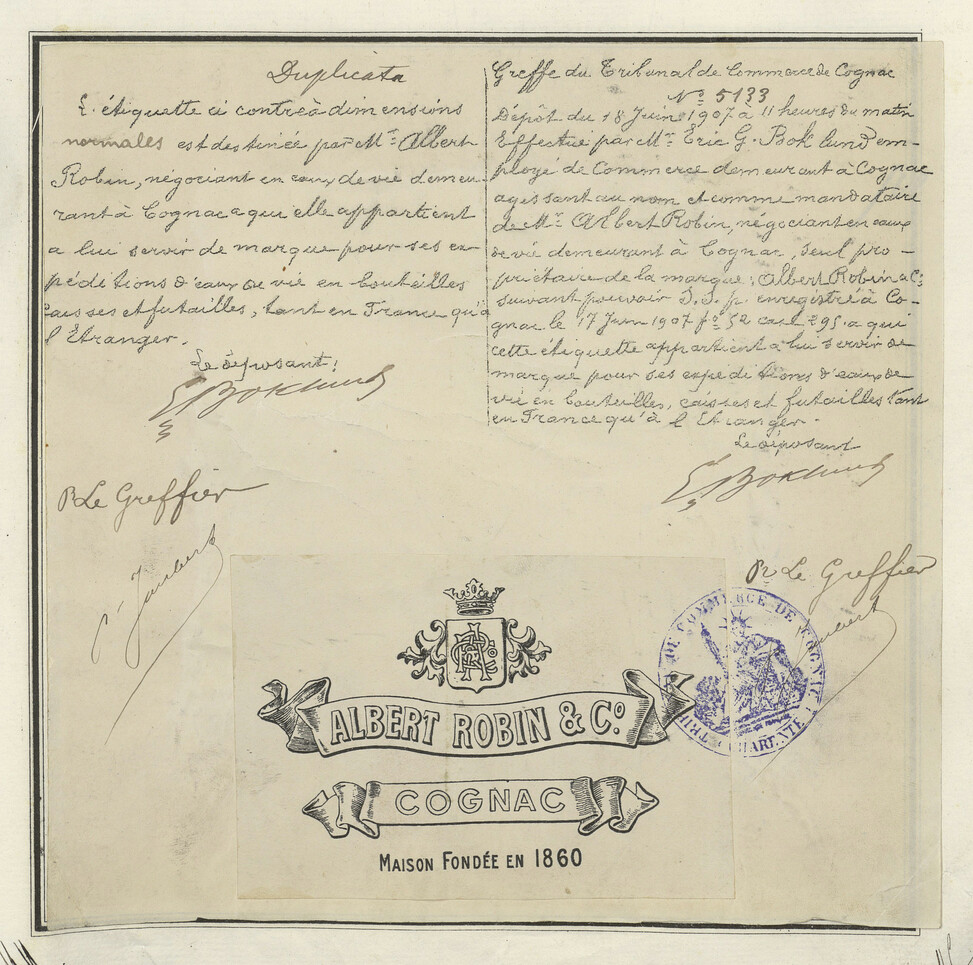 Duplicata
L'étiquette ci contre à dimensions
normales est destinée par Mr Albert
Robin, négociant en eaux de vie demeu-
rant à Cognac a qui elle appartient
a lui servir de marque pour ses ex-
péditions d'eaux de vie en bouteilles
caisses et futailles, tant en France qu'à
l'Étranger.
Le déposant:
E Boklund
Pr Le Greffier
Joubert
Greffe du Tribunal de Commerce de Cognac
No 5133
Dépôt du 18 Juin 1907 à 11 heures du matin
Effectué par Mr Eric G. Boklund em-
ployé de Commerce demeurant à Cognac
agissant au nom et comme mandataire
de Mr Albert Robin, négociant en eaux
de vie demeurant à Cognac, seul pro-
priétaire de la marque: Albert Robin & Co
suivant pouvoir S.S.p. enregistré à Co-
gnac le 17 Juin 1907 fo 52 case 295. a qui
cette étiquette appartient à lui servir de
marque pour ses expeditions d'eaux de
vie en bouteilles, caisses et futailles tant
en France qu'à l'Etranger.
Le déposant
E Boklund
Pr Le Greffier
Joubert
TRIB DE COMMERCE DE COGNAC
(CHARENTE)
ARC
ALBERT ROBIN & Co.
COGNAC
MAISON FONDÉE EN 1860